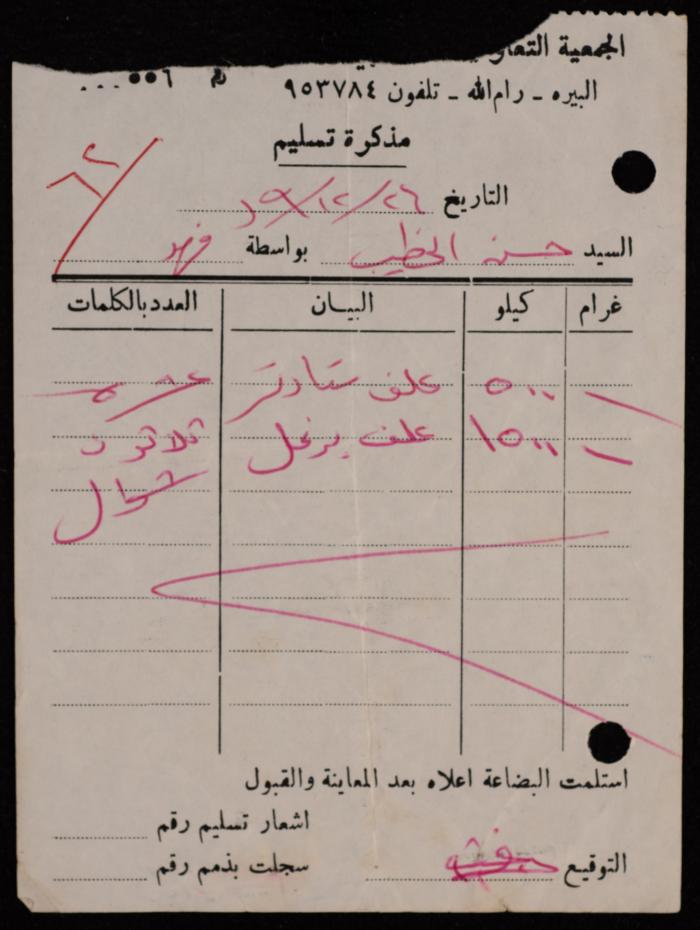 الجمعية التعاو
البيره - رام الله - تلفون ٩٥٣٧٨٤
مذكرة تسليم
٦٢
التاريخ ٢٦/١٢/
السيد حسن الخطيب بواسطة فهد
غرام كيلو البيـان العدد بالكلمات
٥٠٠ علف ستارتر عشرة
١٥٠٠ علف برغل ثلاثون
شوال
استلمت البضاعة اعلاه بعد المعاينة والقبول
اشعار تسليم رقم
التوقيع
سجلت بذمم رقم